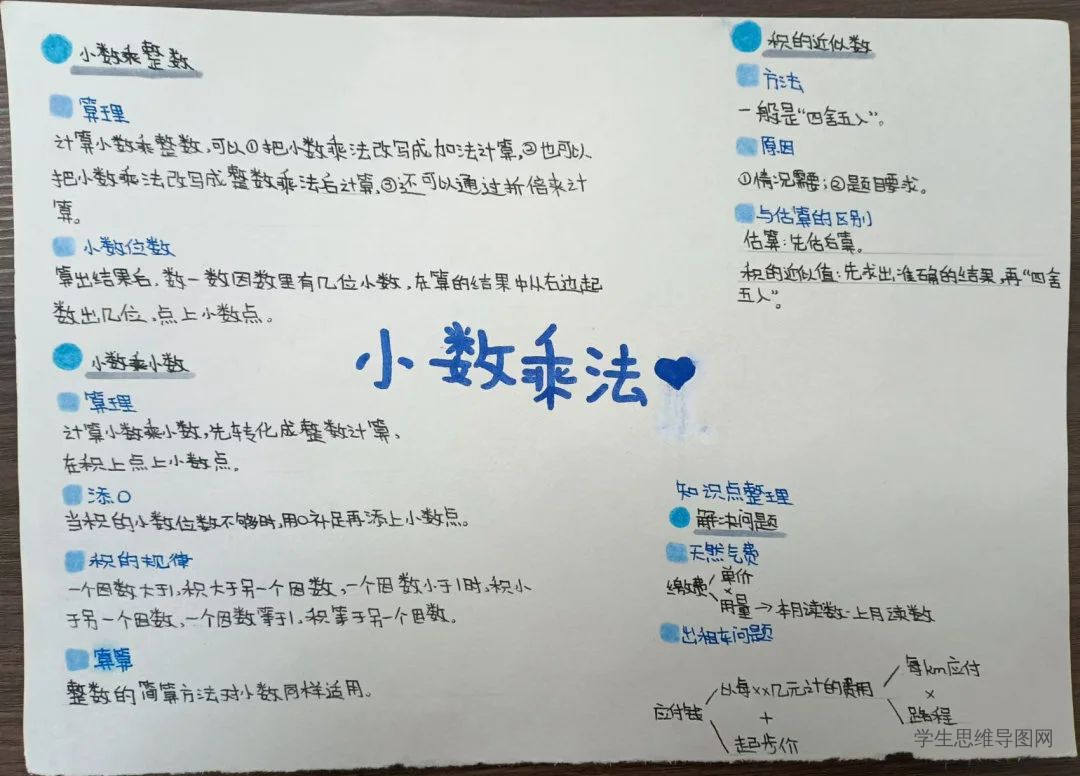 小数乘整数
算理
计算小数乘整数,可以①把小数乘法改写成加法计算,②也可以
把小数乘法改写成整数乘法后计算,③还可以通过折倍来计
算。
小数位数
算出结果后,数一数因数里有几位小数,在算的结果中从右边起
数出几位,点上小数点。
小数乘小数
算理
计算小数乘小数,先转化成整数计算、
在积上点上小数点。
添0
当积的小数位数不够时,用0补足再添上小数点。
积的规律
一个因数大于1,积大于另一个因数,一个因数小于1时,积小
于另一个因数,一个因数等于1,积等于另一个因数。
算算
整数的简算方法对小数同样适用。
小数乘法
积的近似数
方法
一般是“四舍五入”。
原因
①情况需要;②题目要求。
与估算的区别
估算:先估后算。
积的近似值:先求出准确的结果,再“四舍
五入”。
知识点整理
解决问题
天然气费
缴费 单价
×
用量→本月读数-上月读数
出租车问题
每km应付
以每××几元计的费用 ×
路程
应付钱 +
起步价
学生思维导图网